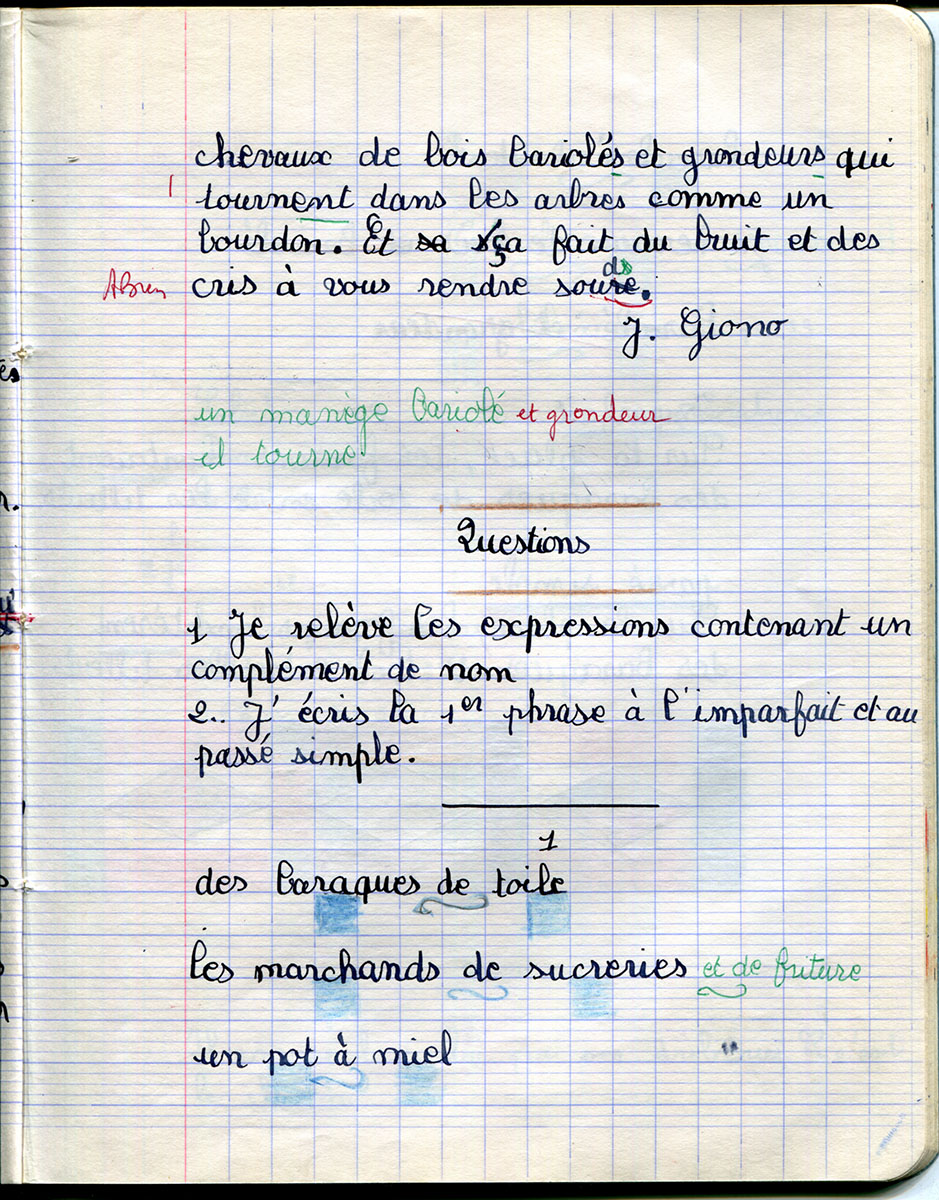 chevaux de bois bariolés et grondeurs qui
tournent dans les arbres comme un
bourdon. Et sa ça fait du bruit et des
ABien cris à vous rendre sourds.
J. Giono
un manège bariolé et grondeur
il tourne
Questions
1 Je relève les expressions contenant un
complément de nom
2.. J' écris la 1er phrase à l'imparfait et au
passé simple.
1
des baraques de toile
les marchands de sucreries et de friture
un pot à miel